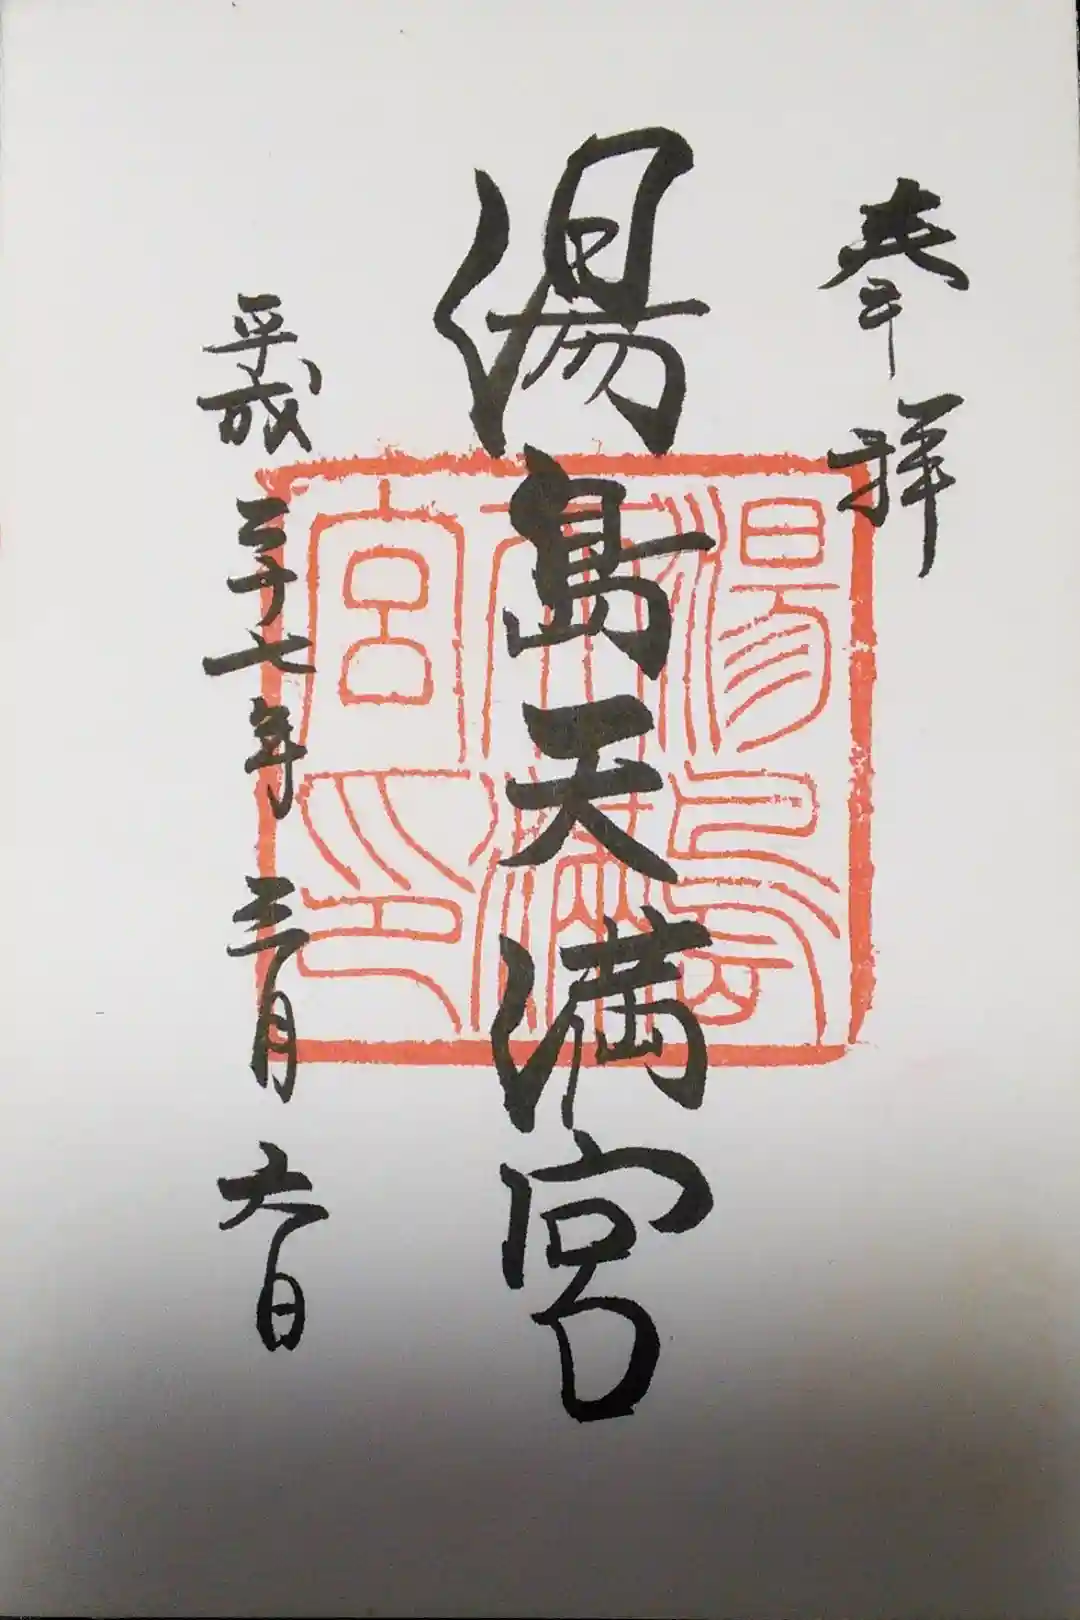 奉拝
湯島天満宮
平成二十七年三月六日
湯島
天満
宮印